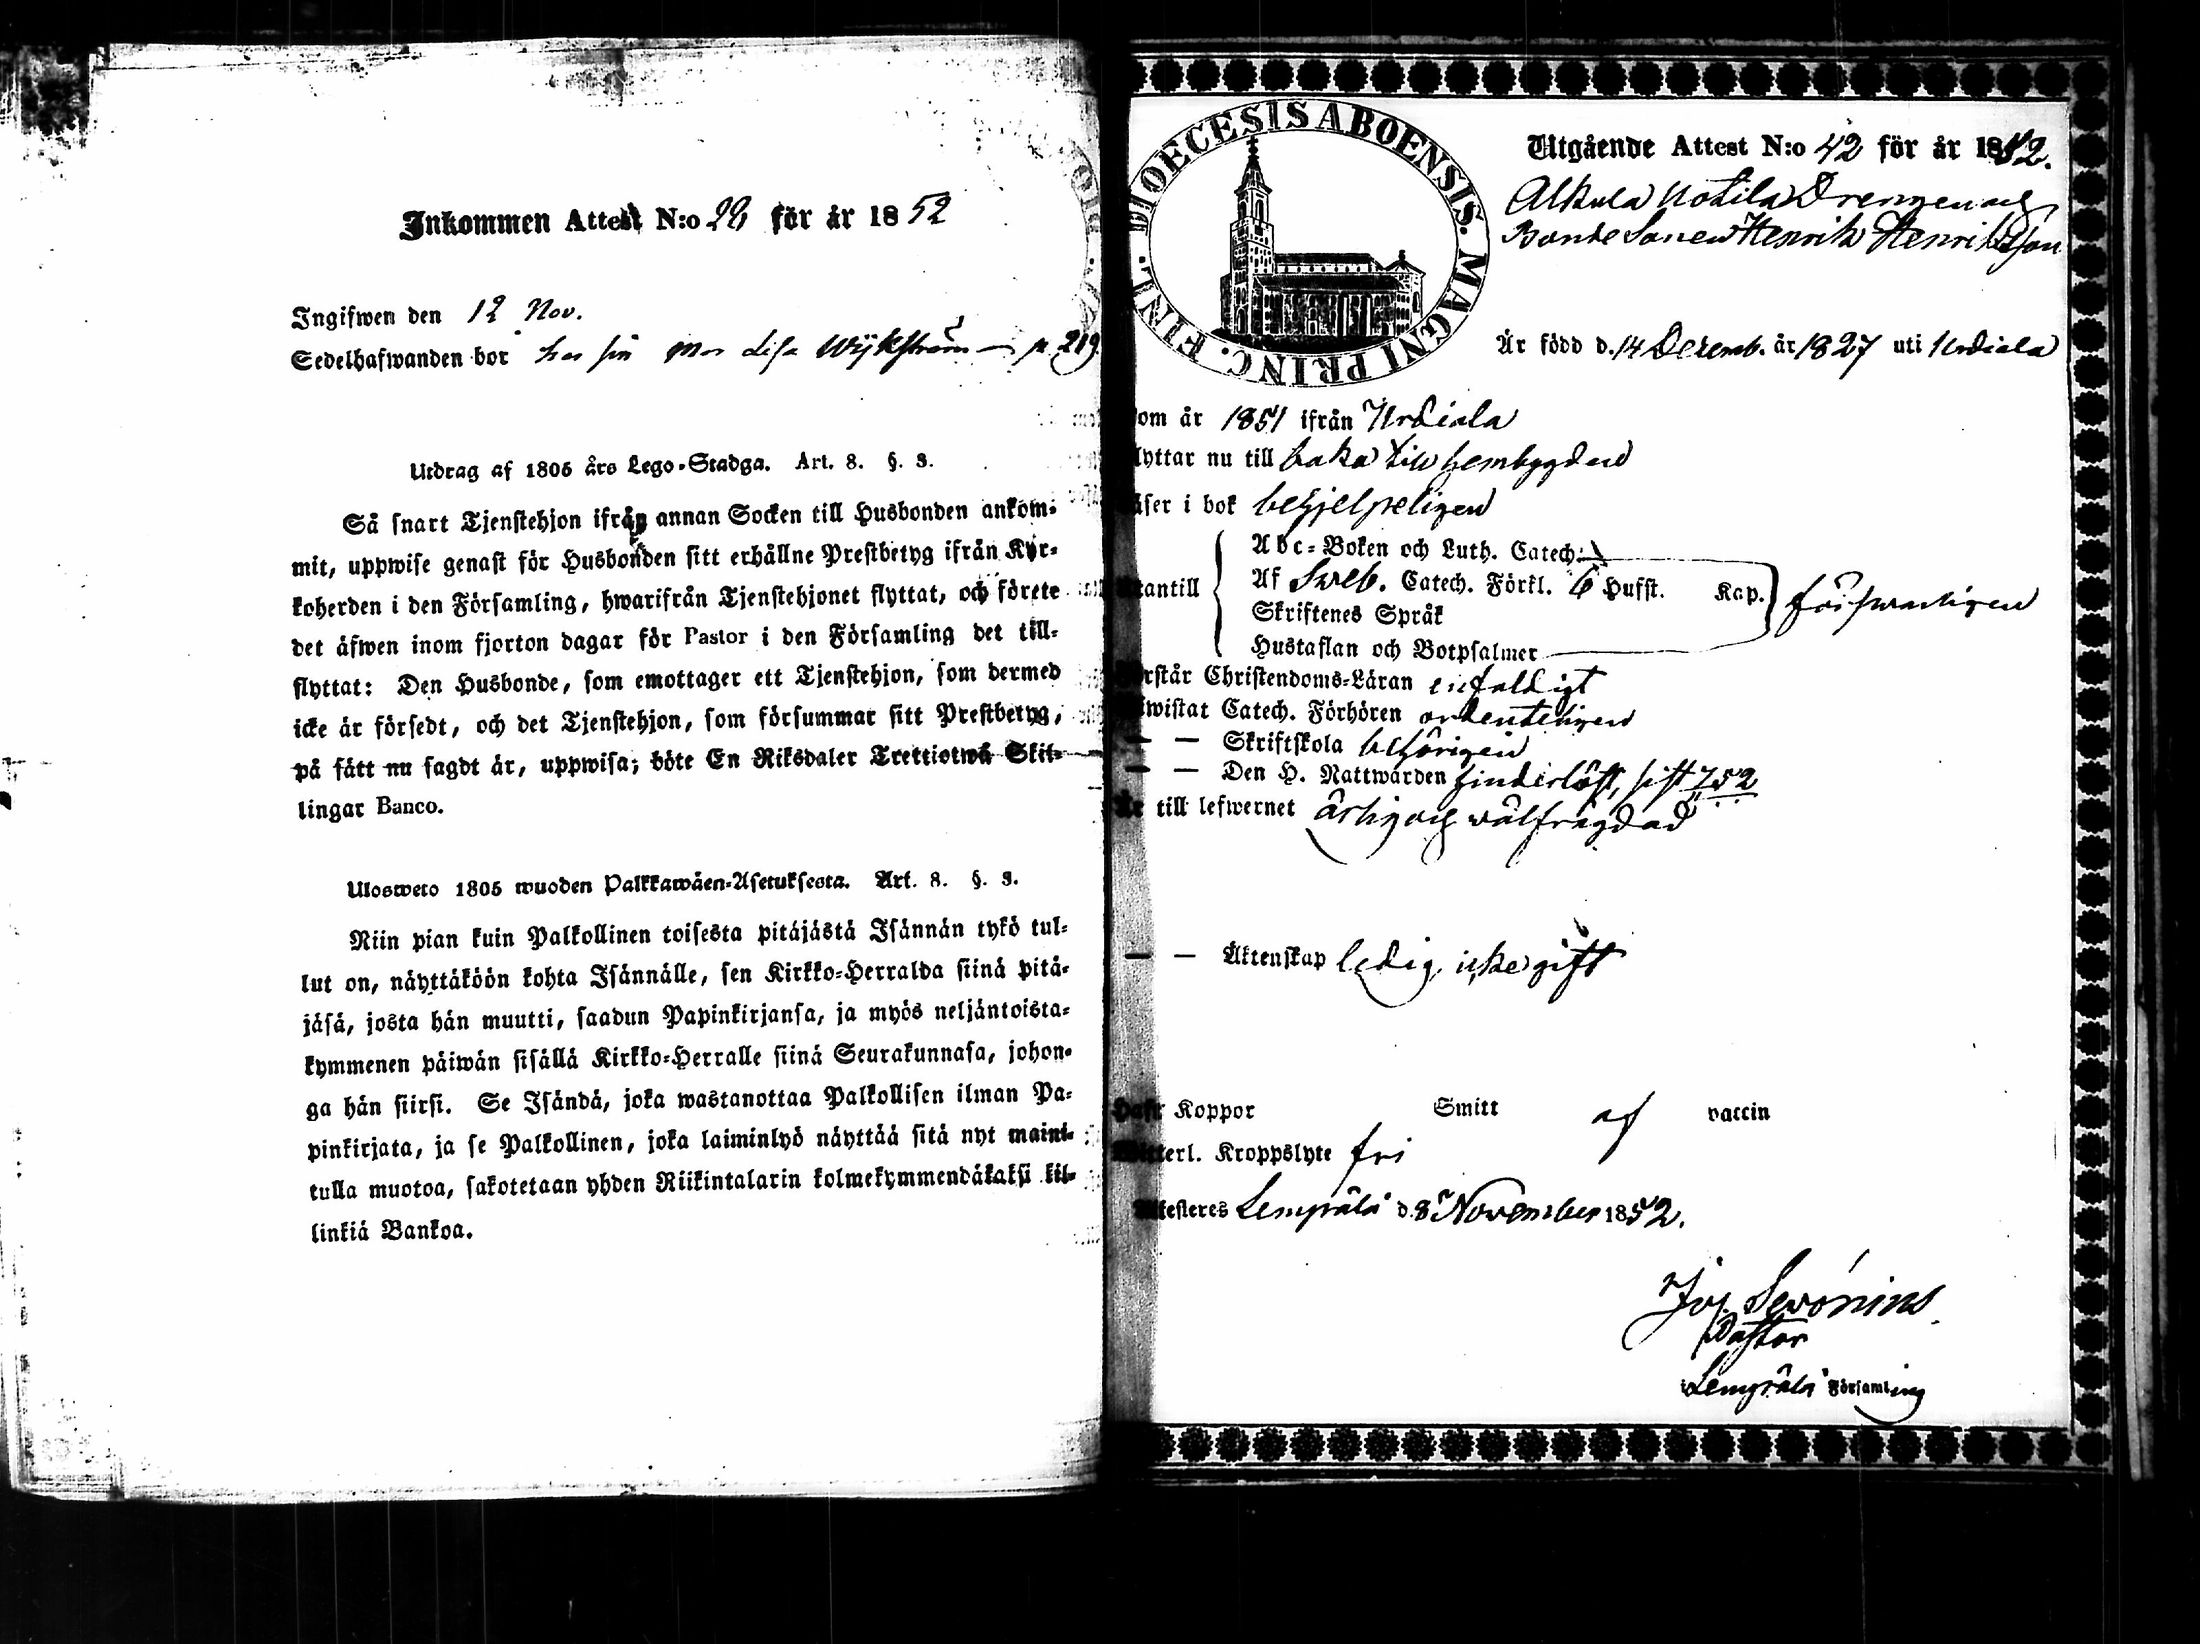 Inkommen Attest N:o 28 för år 1852
Ingifwen den 12 Nov.
Sedelhafwanden bor hos sin Mor Lisa Wijkström p 219.
Utdrag af 1805 års Lego-Stadga. Art. 8. §. 3.
Så snart Tjenstehjon ifrån annan Socken till Husbonden ankom-
mit, uppwise genast för Husbonden sitt erhållne Prestbetyg ifrån Kyr-
koherden i den Församling, hwarifrån Tjenstehjonet flyttat, och förete
det äfwen inom fjorton dagar för Pastor i den Församling det till-
flyttat: Den Husbonde, som emottager ett Tjenstehjon, som dermed
icke är försedt, och det Tjenstehjon, som försummar sitt Prestbetyg,
på sätt nu sagdt är, uppwisa; böte En Riksdaler Trettiotwå Skil-
lingar Banco.
Ulosweto 1805 wuoden Palkkawäen-Asetuksesta. Art. 8. §. 3.
Niin pian kuin Palkollinen toisesta pitäjästä Isännän tykö tul-
lut on, näyttäköön kohta Isännälle, sen Kirkko-Herralda siinä pitä-
jäsä, josta hän muutti, saadun Papinkirjansa, ja myös neljäntoista-
kymmenen päiwän sisällä Kirkko-Herralle siinä Seurakunnasa, johon-
ga hän siirsi. Se Isändä, joka wastanottaa Palkollisen ilman Pa-
pinkirjata, ja se Palkollinen, joka laiminlyö näyttää sitä nyt maini-
tulla muotoa, sakotetaan yhden Riikintalarin kolmekymmendäkaksi kil-
linkiä Bankoa.
DIOECESIS ABOENSIS. MAGNI PRINC. FINL.
Utgående Attest N:o 42 för år 1852.
Alkula Notila Drengen och
Bonde Sonen Henrik Henriksson
Är född d. 14 Decemb. år 1827 uti Urdiala
om år 1851 ifrån Urdiala
lyttar nu till baka till hembygden
äser i bok behjelpeligen
Abc-Boken och Luth. Catech.
tantill Af Sweb. Catech. Förkl. 6 Hufst. Kap. förswarligen
Skriftenes Språk
Hustaflan och Botpsalmer
rstår Christendoms-Läran enfaldigt
wistat Catech. Förhören ordenteligen
— — Skriftskola behörigen
— — Den H. Nattwarden hinderlöst, sist 7 52
Är till lefwernet ärlig och wälfrägdad
— — Äktenskap ledig icke gift
Haft Koppor Smitt af vaccin
terl. Kroppslyte fri
Attesteres Lempälä d. 8 November 1852.
Jos. Serónius
Pastor
i Lempälä Församling